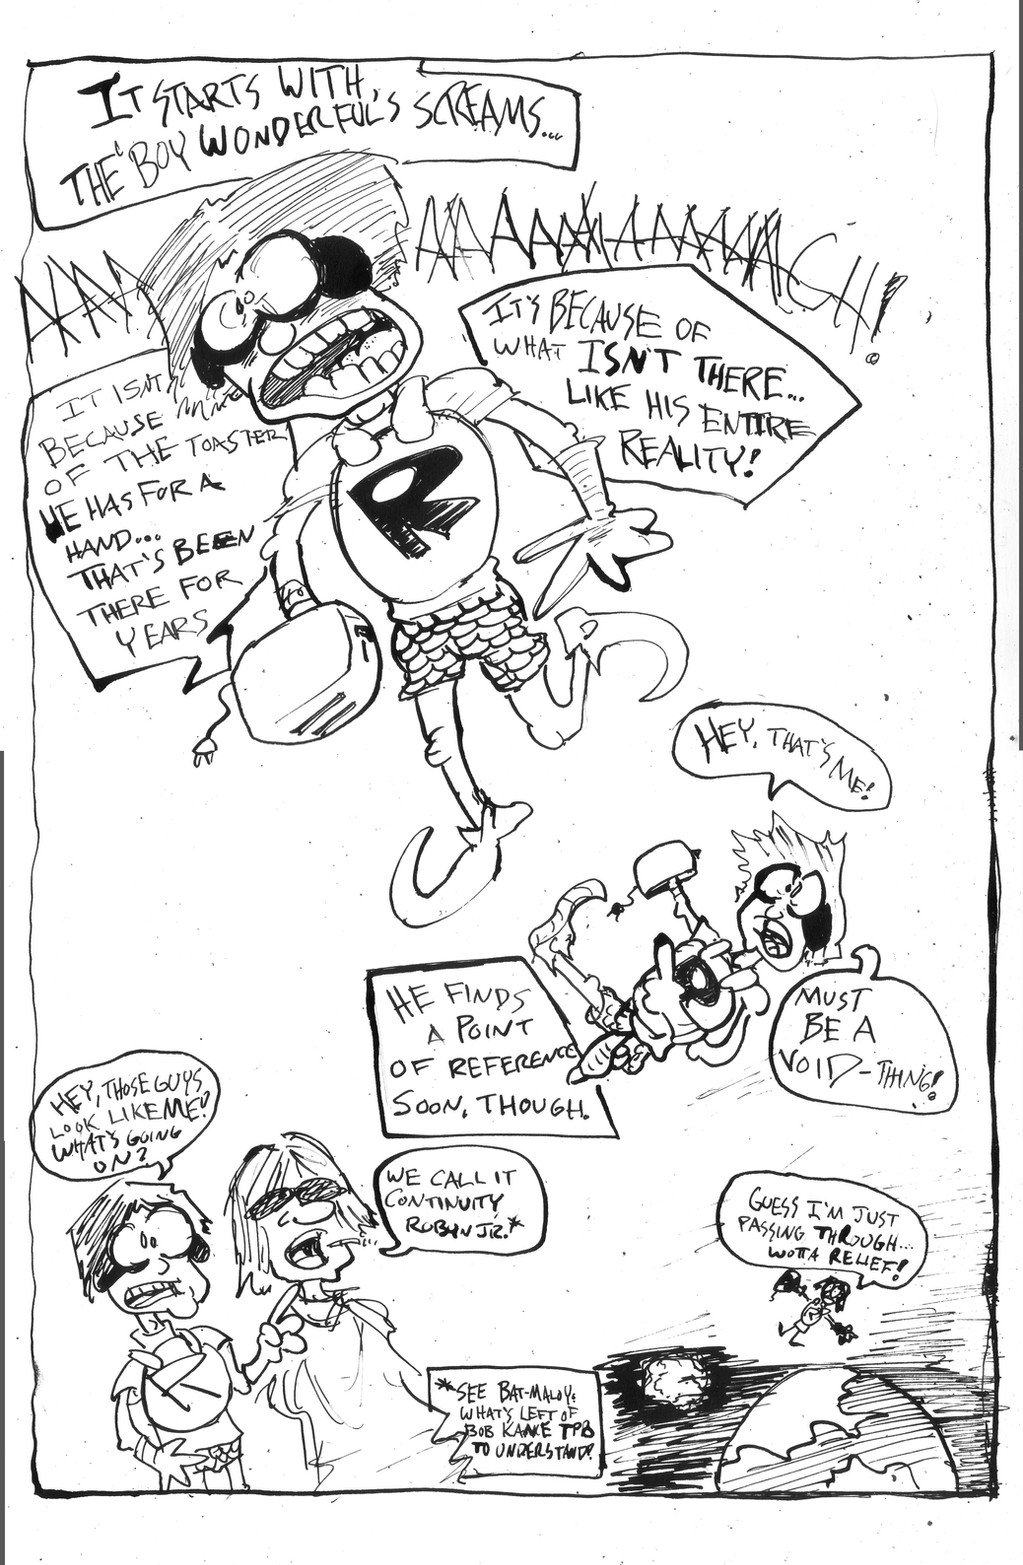 IT STARTS WITH,
THE 'BOY WONDERFUL'S SCREAMS...
IT ISN'T
BECAUSE
OF THE TOASTER
HE HAS FOR A
HAND...
THAT'S BEEN
THERE FOR
YEARS
IT'S BECAUSE OF
WHAT ISN'T THERE...
LIKE HIS ENTIRE
REALITY!
R
HEY, THAT'S
ME!
HE FINDS
A POINT
OF REFERENCE
SOON, THOUGH.
MUST
BE A
VOID-THING!
HEY, THOSE GUYS
LOOK LIKE ME!
WHAT'S GOING
ON?
WE CALL IT
CONTINUITY
ROBYN JR.*
GUESS I'M JUST
PASSING THROUGH...
WOTTA RELIEF!
*SEE BAT-MALOY:
WHAT'S LEFT OF
BOB KANKE TPB
TO UNDERSTAND!